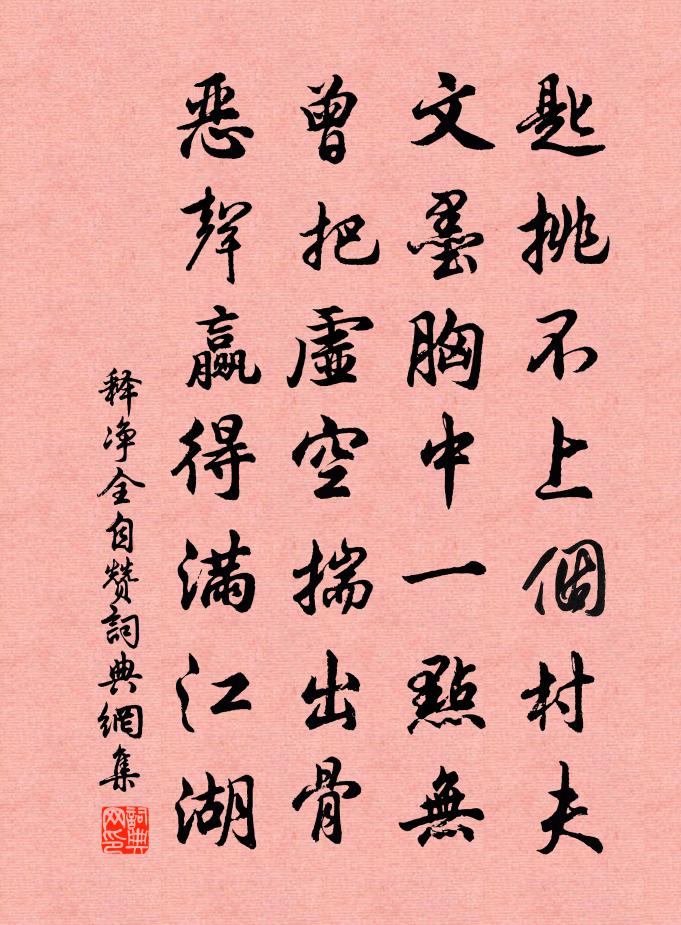 匙挑不上個村夫
文墨胸中一點無
曾把虛空揣出骨
惡聲贏得滿江湖
释净全自赞詞典網集
詞典网印